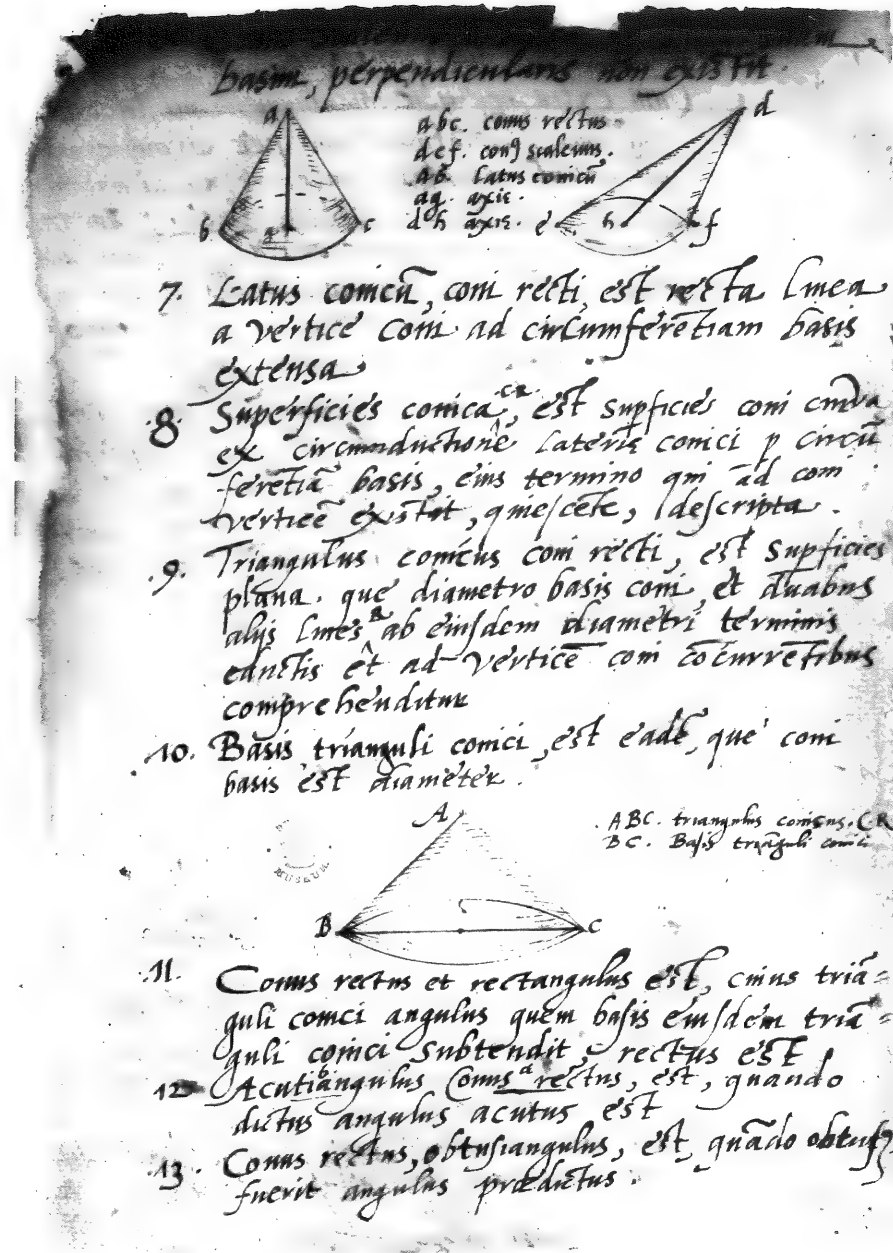 basim, perpendicularis non existit.
a
d
abc. conus rectus
def. con9 scalenus.
ab latus conicū
ag. axis.
dh axis.
b
g
c
e
h
f
7. Latus conicū, coni recti, est recta linea
a vertice Coni ad circumferētiam basis
extensa
.8. Superficies conica CR, est supficies coni curva
ex circumductione Lateris conici p circū
ferētiā basis, eius termino qui ad coni
verticē existit, quiescēte, descripta.
.9. Triangulus conicus coni recti, est supficies
plana. que diametro basis coni, et duabus
alijs lines R ab eiusdem diametri terminis
eductis et ad verticē coni cōcurrētibus
comprehenditur
.10. Basis trianguli conici, est eadē, que coni
basis est diameter.
A
ABC. triangulus conicus. CR
BC. Basis triāguli conici
MUSEUM
B
C
.11. Conus rectus et rectangulus est, cuius triā=
guli conici angulus quem basis eiusdem triā=
guli conici subtendit, rectus est
12 Acutiangulus b Conus a rectus, est, quando
dictus angulus acutus est
.13. Conus rectus, obtusiangulus, est, quādo obtus9
fuerit angulus prædictus.